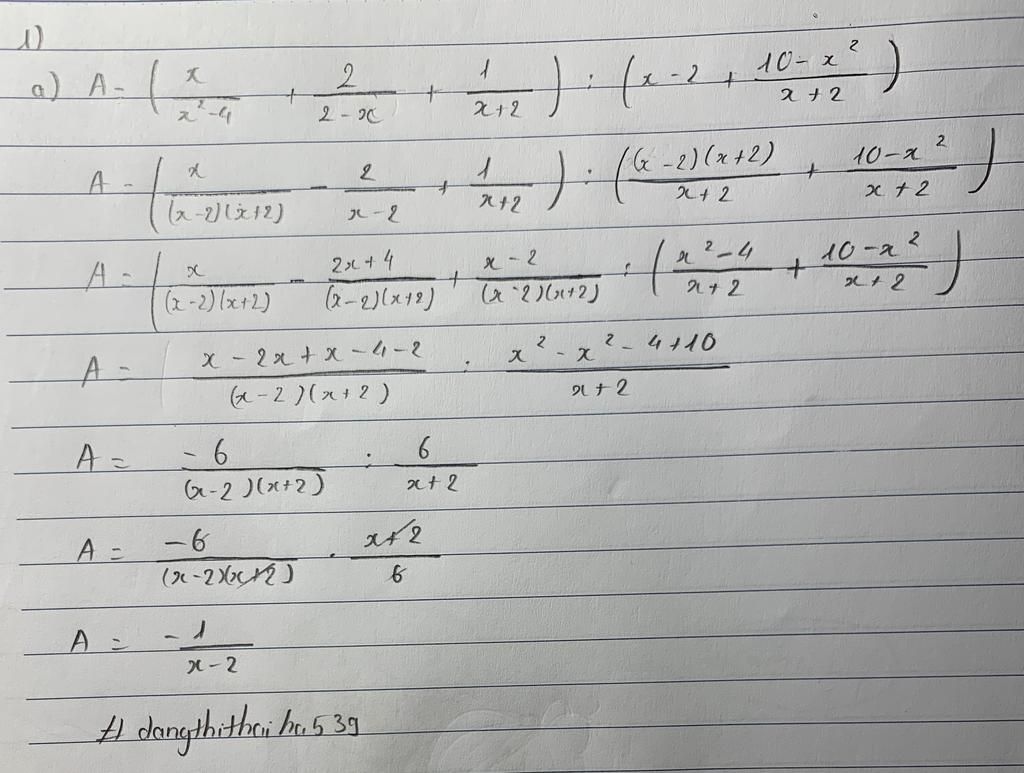 1)
a) A = ( x / (x² - 4) + 2 / (2 - x) + 1 / (x + 2) ) : ( x - 2 + (10 - x²) / (x + 2) )
A = ( x / ((x - 2)(x + 2)) - 2 / (x - 2) + 1 / (x + 2) ) : ( ((x - 2)(x + 2)) / (x + 2) + (10 - x²) / (x + 2) )
A = ( x / ((x - 2)(x + 2)) - (2x + 4) / ((x - 2)(x + 2)) + (x - 2) / ((x - 2)(x + 2)) : ( (x² - 4) / (x + 2) + (10 - x²) / (x + 2) )
A = (x - 2x + x - 4 - 2) / ((x - 2)(x + 2)) : (x² - x² - 4 + 10) / (x + 2)
A = -6 / ((x - 2)(x + 2)) : 6 / (x + 2)
A = -6 / ((x - 2)(x + 2)) . (x + 2) / 6
A = -1 / (x - 2)
# dangthithaiha539